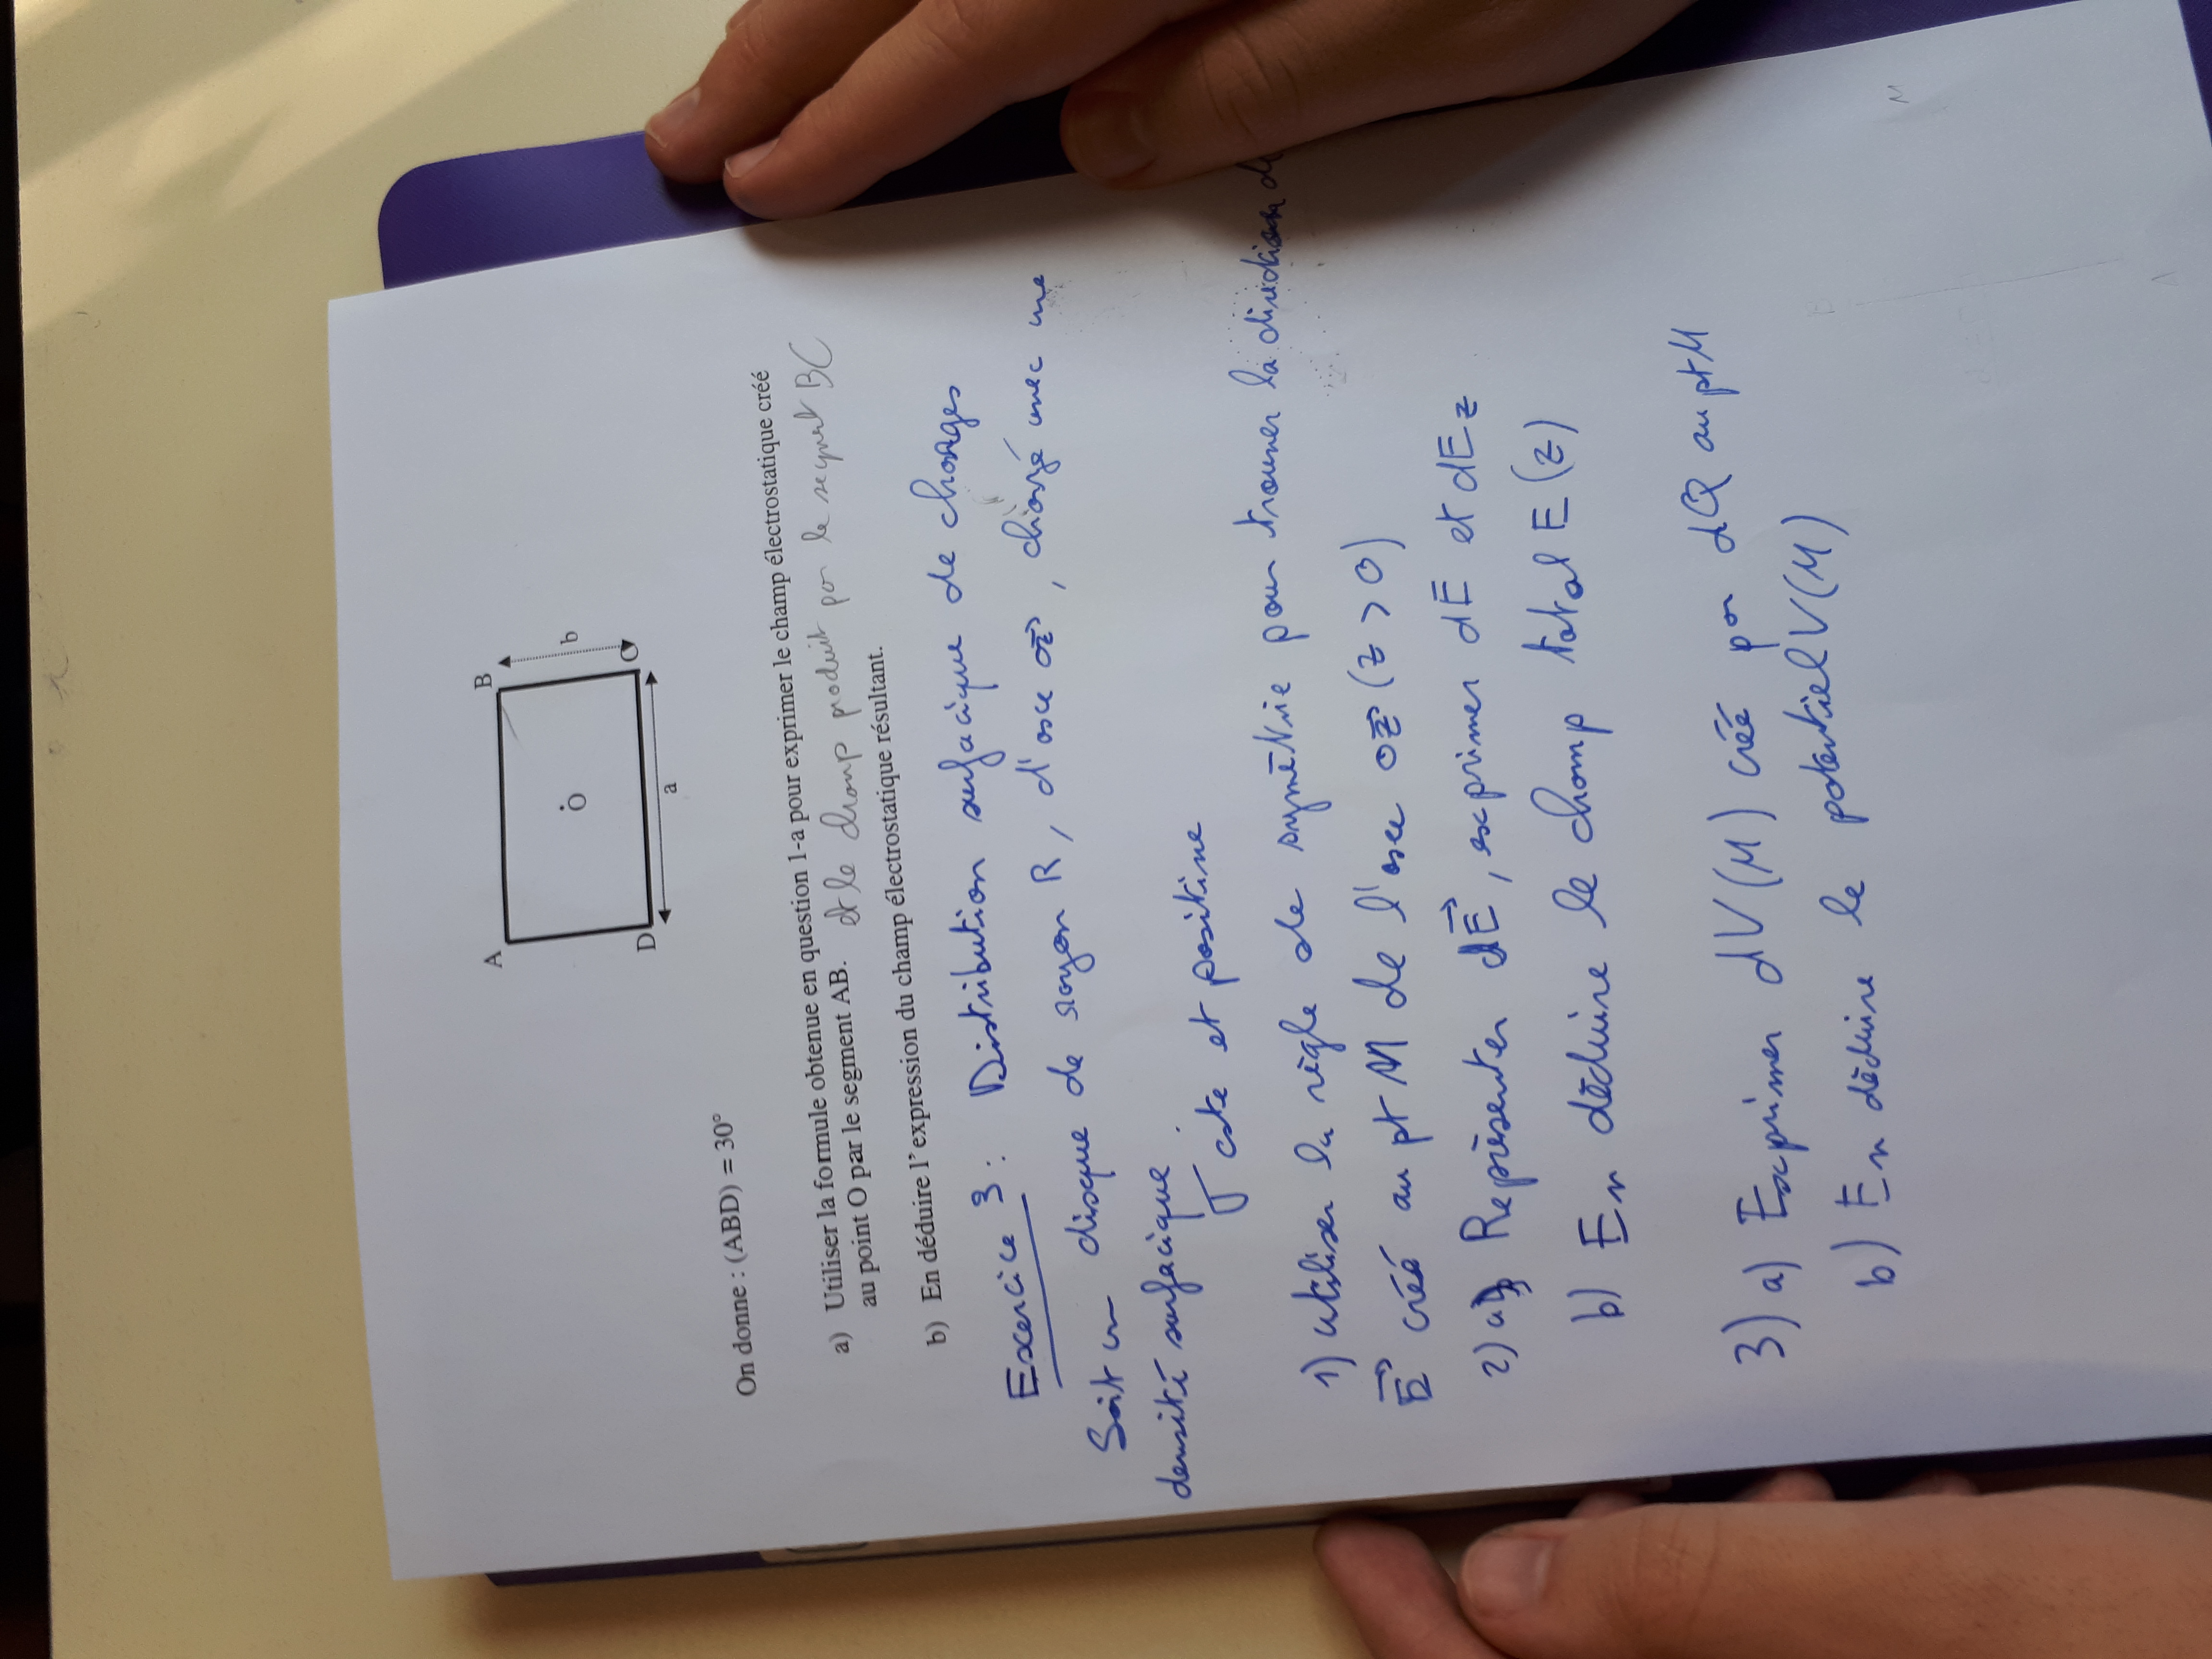 A B
O
b
D C
a
On donne : (ABD) = 30°
a) Utiliser la formule obtenue en question 1-a pour exprimer le champ électrostatique créé
au point O par le segment AB. et le champ produit par le segment BC
b) En déduire l'expression du champ électrostatique résultant.
Exercice 3 : Distribution surfacique de charges
Soit un disque de rayon R, d'axe oz⃗, chargé avec une
densité surfacique
σ cste et positive
1) utiliser la règle de symétrie pour trouver la direction de
E⃗ créé au pt M de l'axe oz⃗ (z > 0)
2) a) Représenter dE⃗, exprimer dE et dEz
b) En déduire le champ total E(z)
3) a) Exprimer dV(M) créé par dQ au pt M
b) En déduire le potentiel V(M)
M